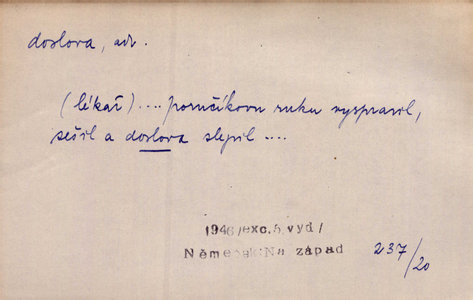 doslova, adv.
(lékař) .... poručíkovu ruku vyspravil,
sešil a doslova slepil ....
1946/exc.5.vyd/
Němeček:Na západ
237/20